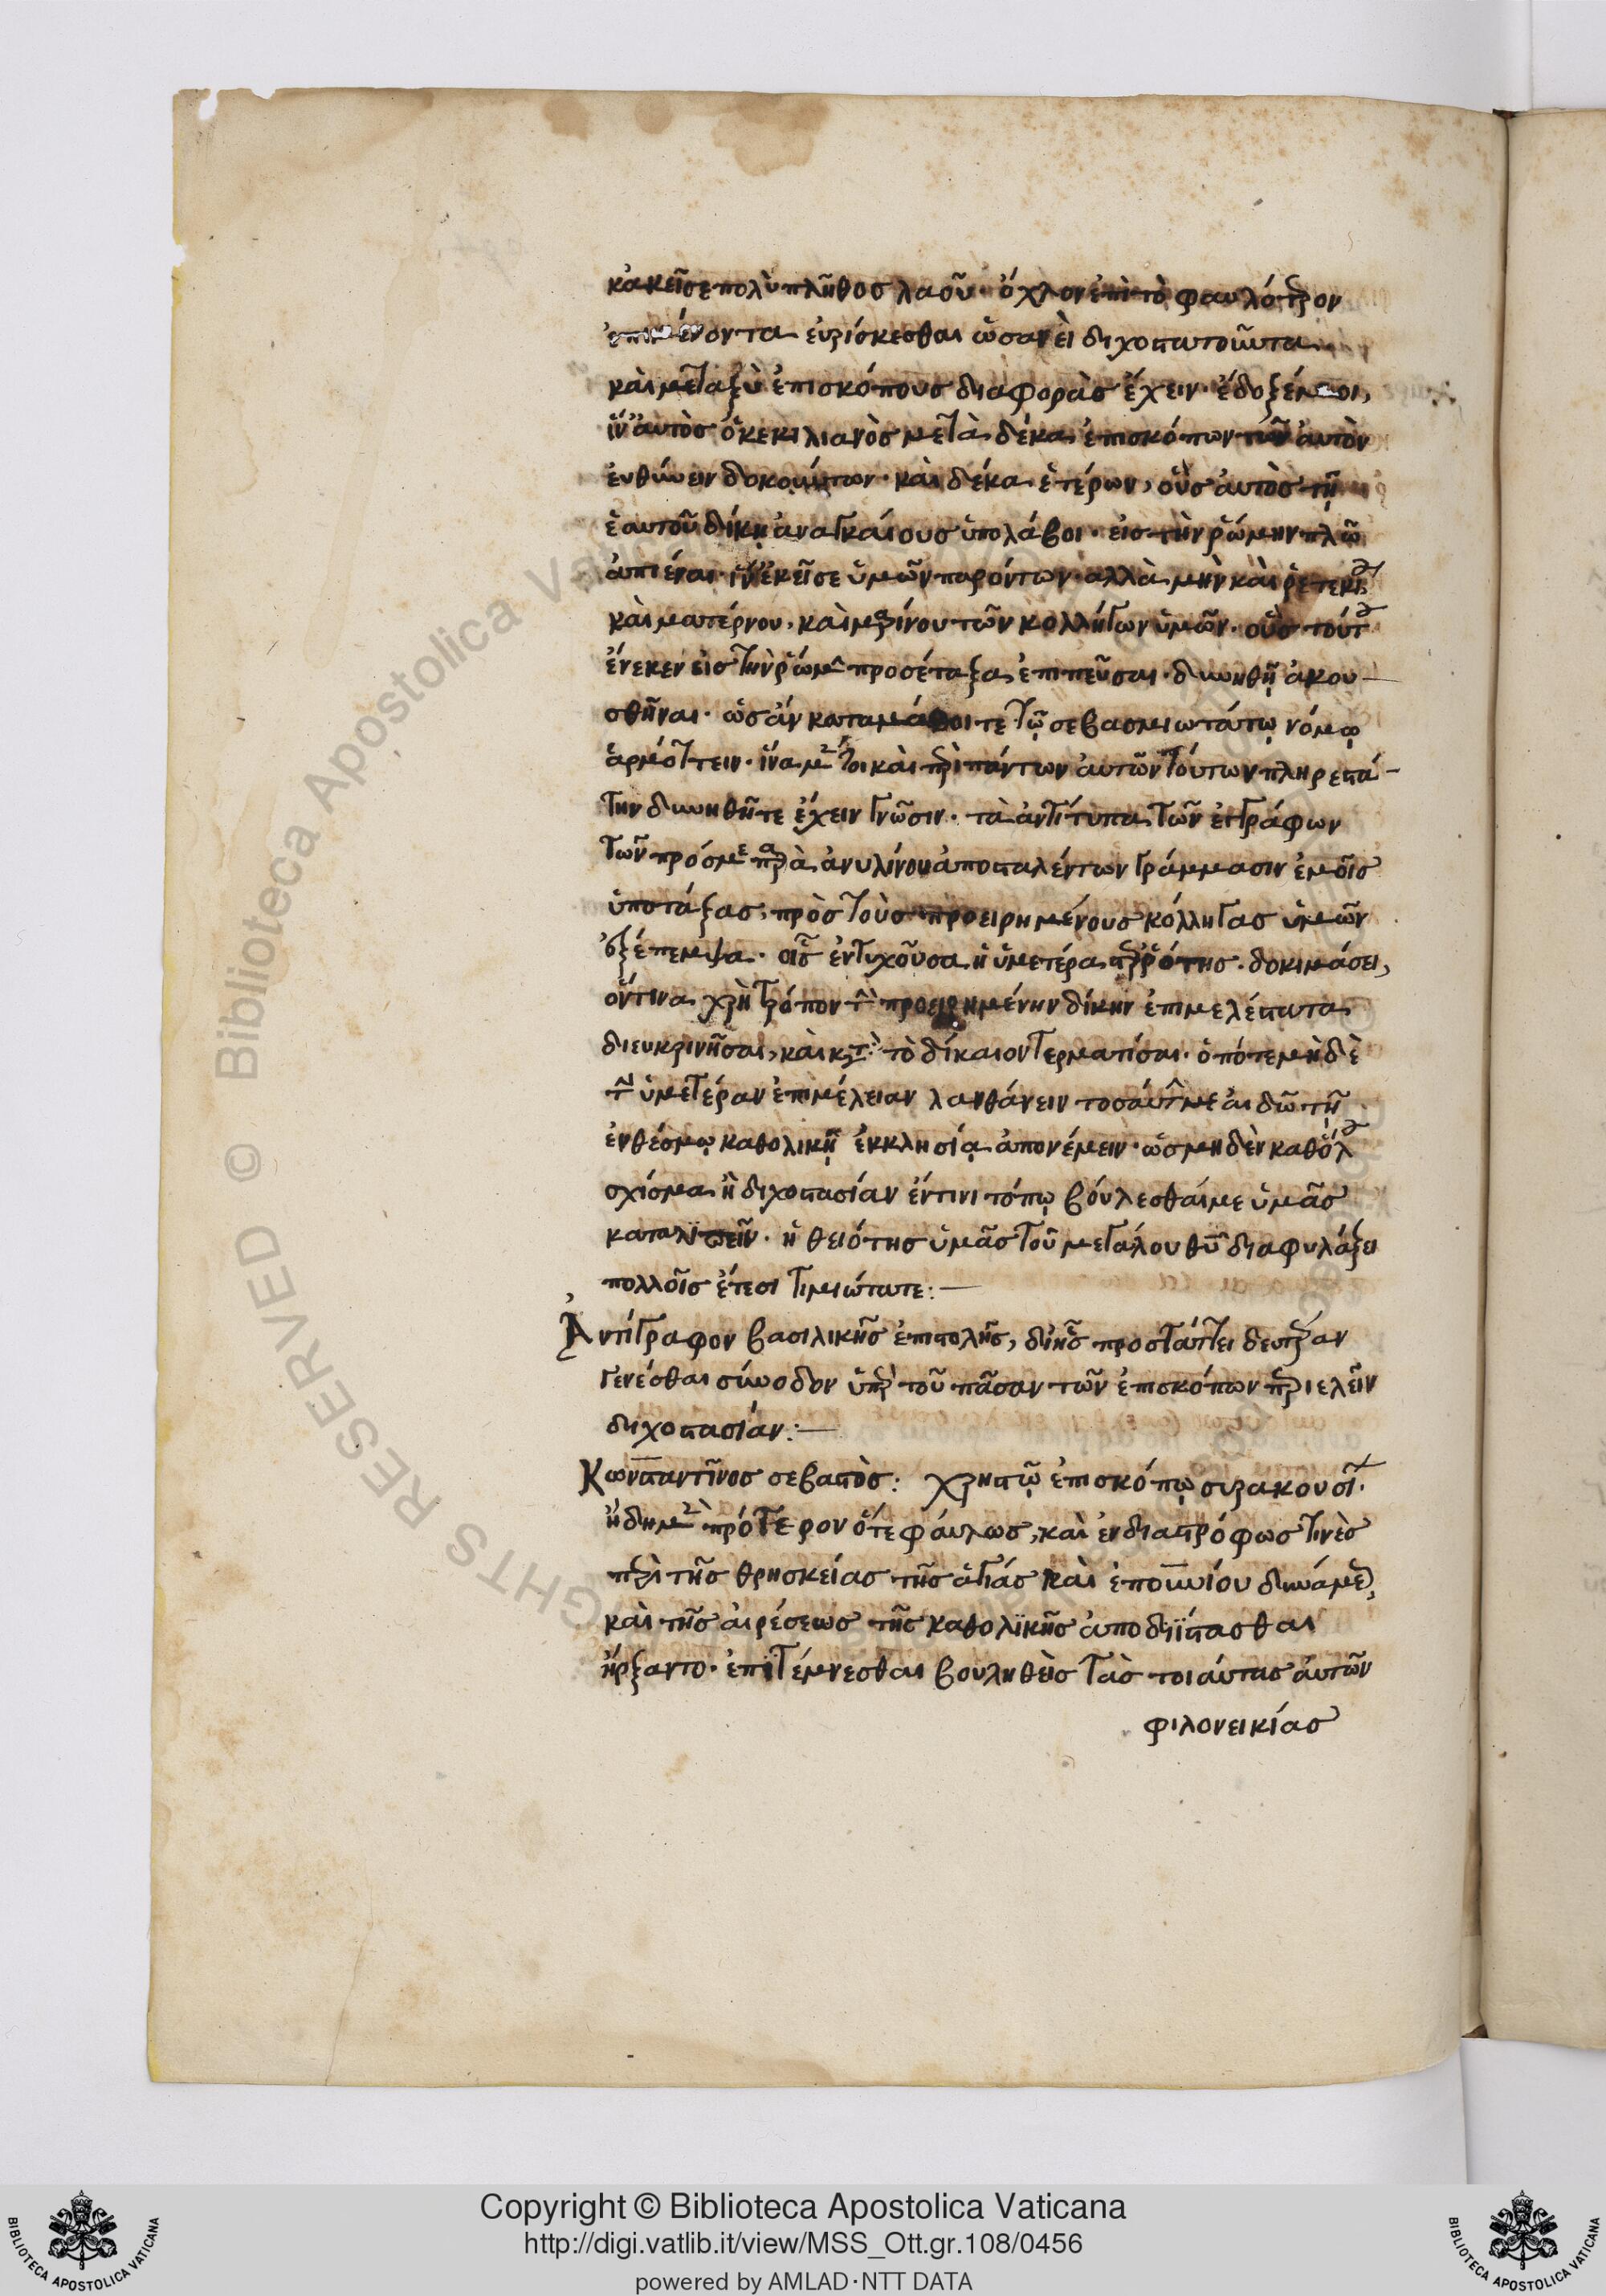 κἀκεῖσε πολὺ πλῆθος λαοῦ· ὄχλον ἐπὶ τὸ φαυλότερον
ἐπιμένοντα εὑρίσκεσθαι ὡσανεὶ διχοστατοῦντα
καὶ μεταξὺ ἐπισκόπους διαφορὰς ἔχειν· ἔδοξέ μοι,
ἵν' αὐτὸς ὁ κεκιλιανὸς μετὰ δέκα ἐπισκόπων τῶν αὐτὸν
εὐθύνειν δοκούντων· καὶ δέκα ἑτέρων, οὓς αὐτὸς τῇ
ἑαυτοῦ δίκῃ ἀναγκαίους ὑπολάβοι· εἰς τὴν ῥώμην πλῷ
ἀπιέναι· ἵν' ἐκεῖσε ὑμῶν παρόντων· ἀλλὰ μὴν καὶ ῥετεκίου
καὶ ματέρνου, καὶ μαρίνου τῶν κολλήγων ὑμῶν· οὓς τούτου
ἕνεκεν εἰς τὴν ῥώμην προσέταξα ἐπισπεῦσαι· δυνηθῇ ἀκου
σθῆναι· ὡς ἂν καταμάθοιτε τῷ σεβασμιωτάτῳ νόμῳ
ἁρμόττειν· ἵνα μέντοι καὶ περὶ πάντων αὐτῶν τούτων πληρεστά
την δυνηθῆτε ἔχειν γνῶσιν· τὰ ἀντίτυπα τῶν ἐγγράφων
τῶν πρός με παρὰ ἀνυλίνου ἀποσταλέντων γράμμασιν ἐμοῖς
ὑποτάξας, πρὸς τοὺς προειρημένους κόλληγας ὑμῶν
ἐξέπεμψα· οἷς ἐντυχοῦσα ἡ ὑμετέρα στερρότης· δοκιμάσει,
ὅντινα χρὴ τρόπον τὴν προειρημένην δίκην ἐπιμελέστατα
διευκρινῆσαι, καὶ κατὰ τὸ δίκαιον τερματίσαι· ὁπότε μηδὲ
τὴν ὑμετέραν ἐπιμέλειαν λανθάνειν τοσαύτην με αἰδῶ τῇ
ἐνθέσμῳ καθολικῇ ἐκκλησίᾳ ἀπονέμειν· ὡς μηδὲν καθόλου
σχίσμα ἢ διχοστασίαν ἔν τινι τόπῳ βούλεσθαί με ὑμᾶς
καταλιπεῖν· ἡ θειότης ὑμᾶς τοῦ μεγάλου θυ διαφυλάξει
πολλοῖς ἔτεσι τιμιώτατε:—
Ἀντίγραφον βασιλικῆς ἐπιστολῆς, δι' ἧς προστάττει δευτέραν
γενέσθαι σύνοδον ὑπὲρ τοῦ πᾶσαν τῶν ἐπισκόπων περιελεῖν
διχοστασίαν:—
Κωνσταντῖνος σεβαστὸς: χρηστῷ ἐπισκόπῳ συρακουσίων·
ἤδη μὲν πρότερον ὅτε φαύλως, καὶ ἐνδιαστρόφως τινὲς
περὶ τῆς θρησκείας τῆς ἁγίας καὶ ἐπουνίου δυνάμεως,
καὶ τῆς αἱρέσεως τῆς καθολικῆς ἀποδιΐστασθαι
ἤρξαντο· ἐπιτέμνεσθαι βουληθεὶς τὰς τοιαύτας αὐτῶν
φιλονεικίας
Copyright © Biblioteca Apostolica Vaticana
http://digi.vatlib.it/view/MSS_Ott.gr.108/0456
powered by AMLAD·NTT DATA